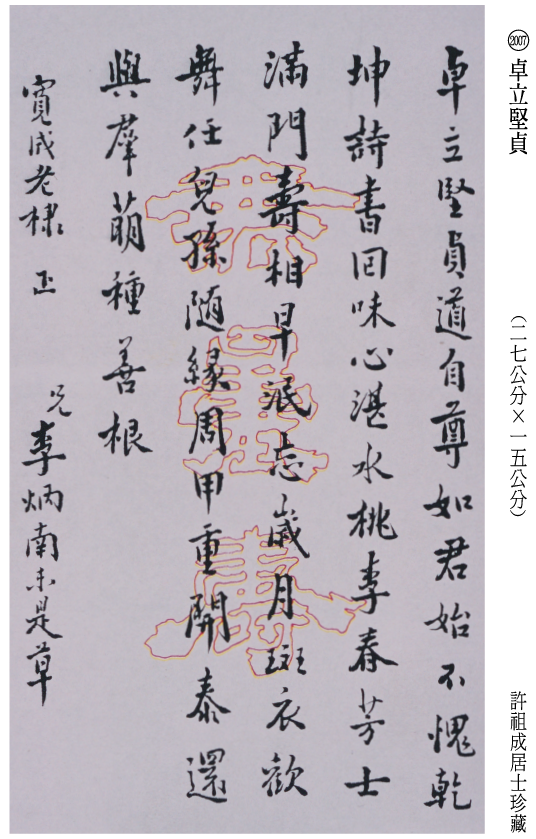 2007 卓立堅貞
（二七公分×一五公分）
許祖成居士珍藏
卓立堅貞道自尊如君始不愧乾
坤詩書回味心湛水桃李春芳士
滿門壽相早泯忘歲月斑衣歡
舞任兒孫隨緣周甲重開泰還
與羣萌種善根
寬成老棣正
兄李炳南未是草
無量壽